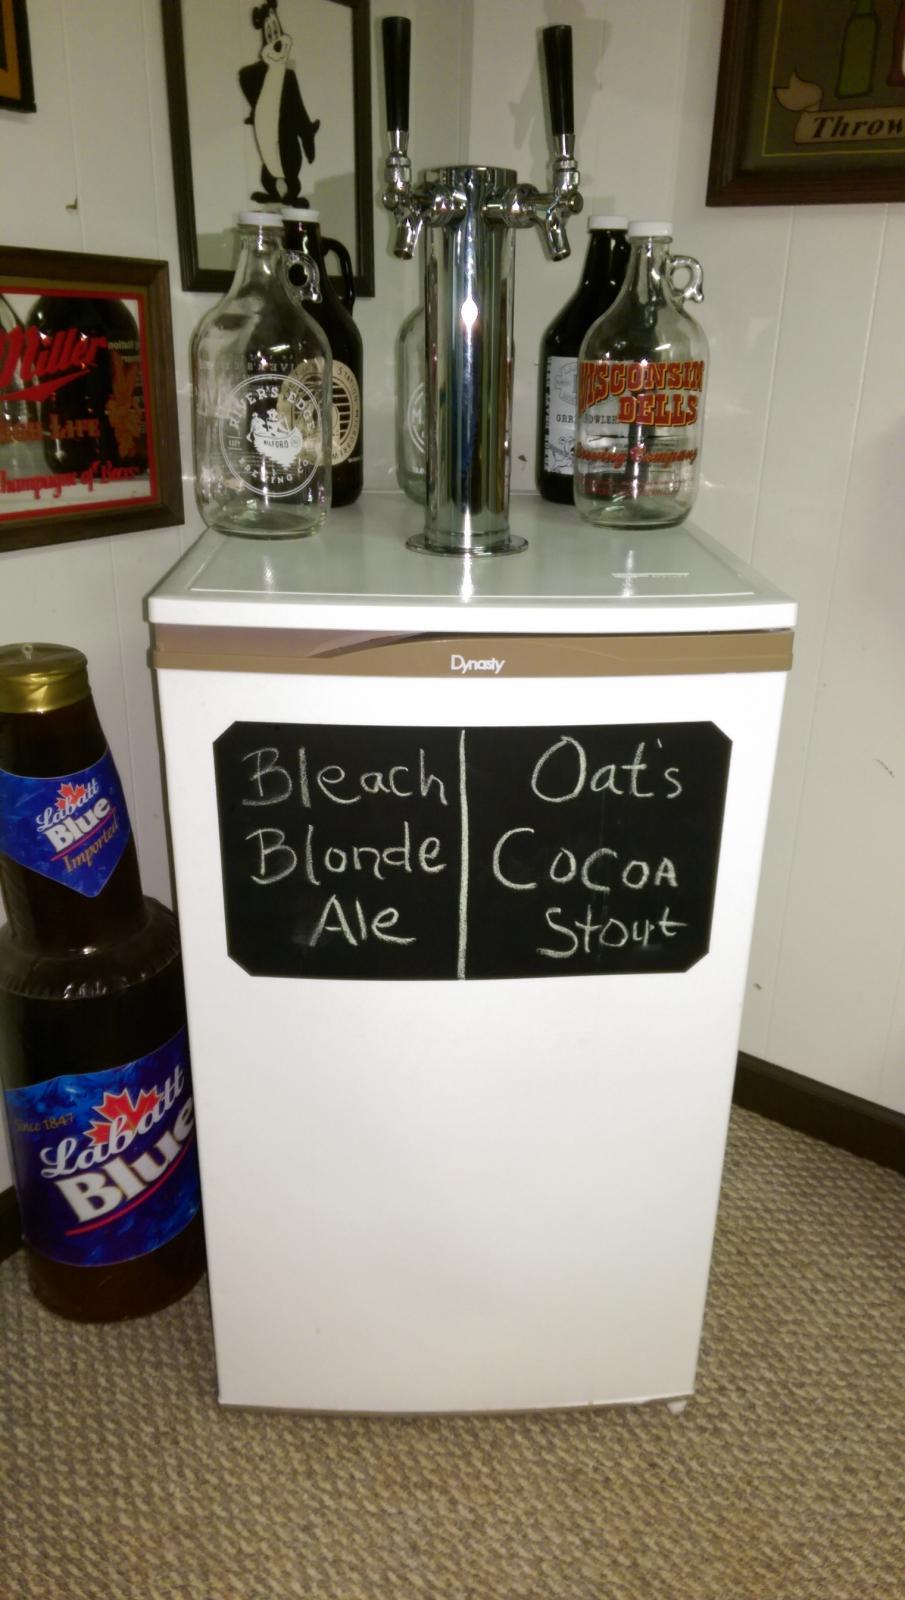 Throw
Miller
High Life
Champagne of Beers
RIVER'S EDGE
MILFORD
BREWING CO
WISCONSIN
DELLS
Brewing Company
Dynasty
Bleach
Blonde
Ale
Oat's
Cocoa
Stout
Labatt
Blue
Imported
Since 1847
Labatt
Blue